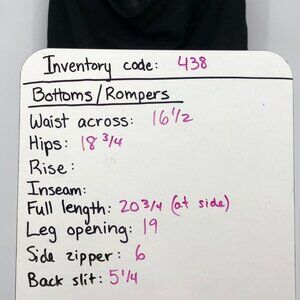 Inventory code: 438
Bottoms/Rompers
Waist across: 16 1/2
Hips: 18 3/4
Rise:
Inseam:
Full length: 20 3/4 (at side)
Leg opening: 19
Side zipper: 6
Back slit: 5 1/4